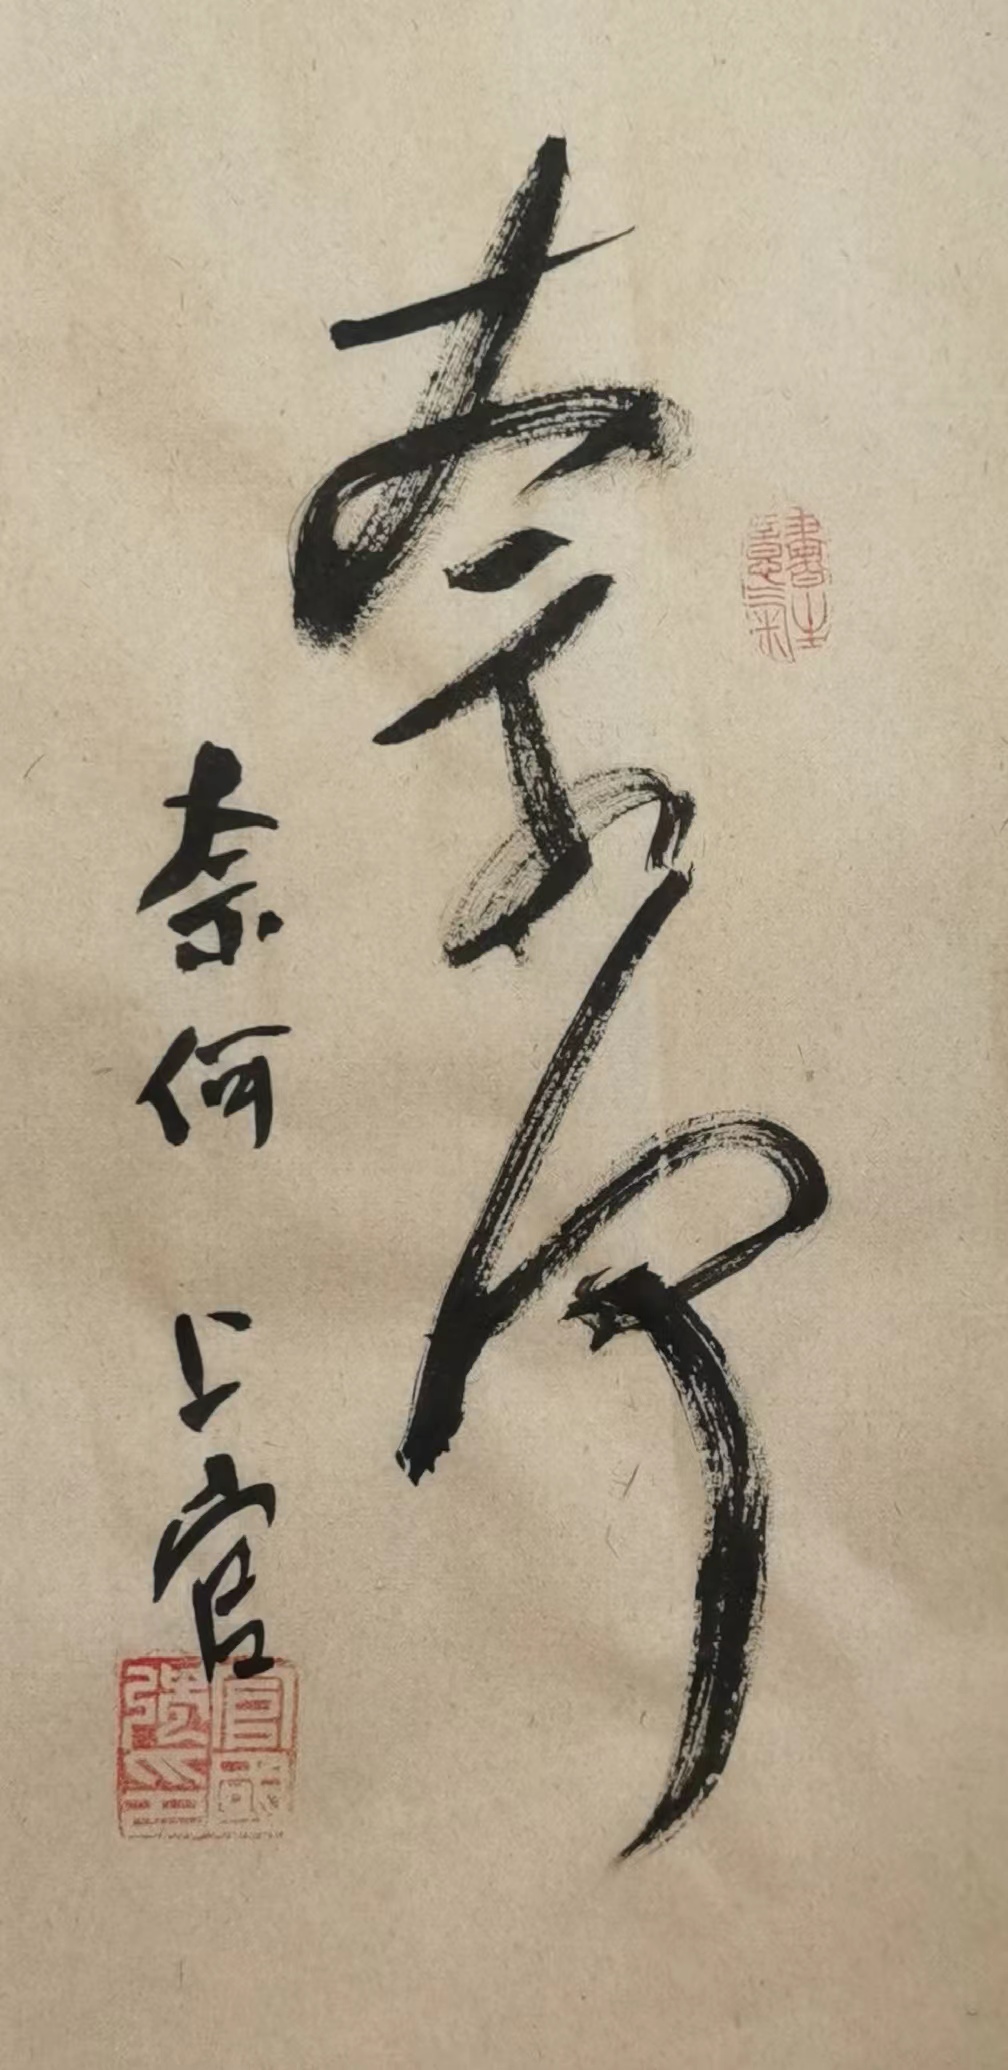 奈何
奈何 上官